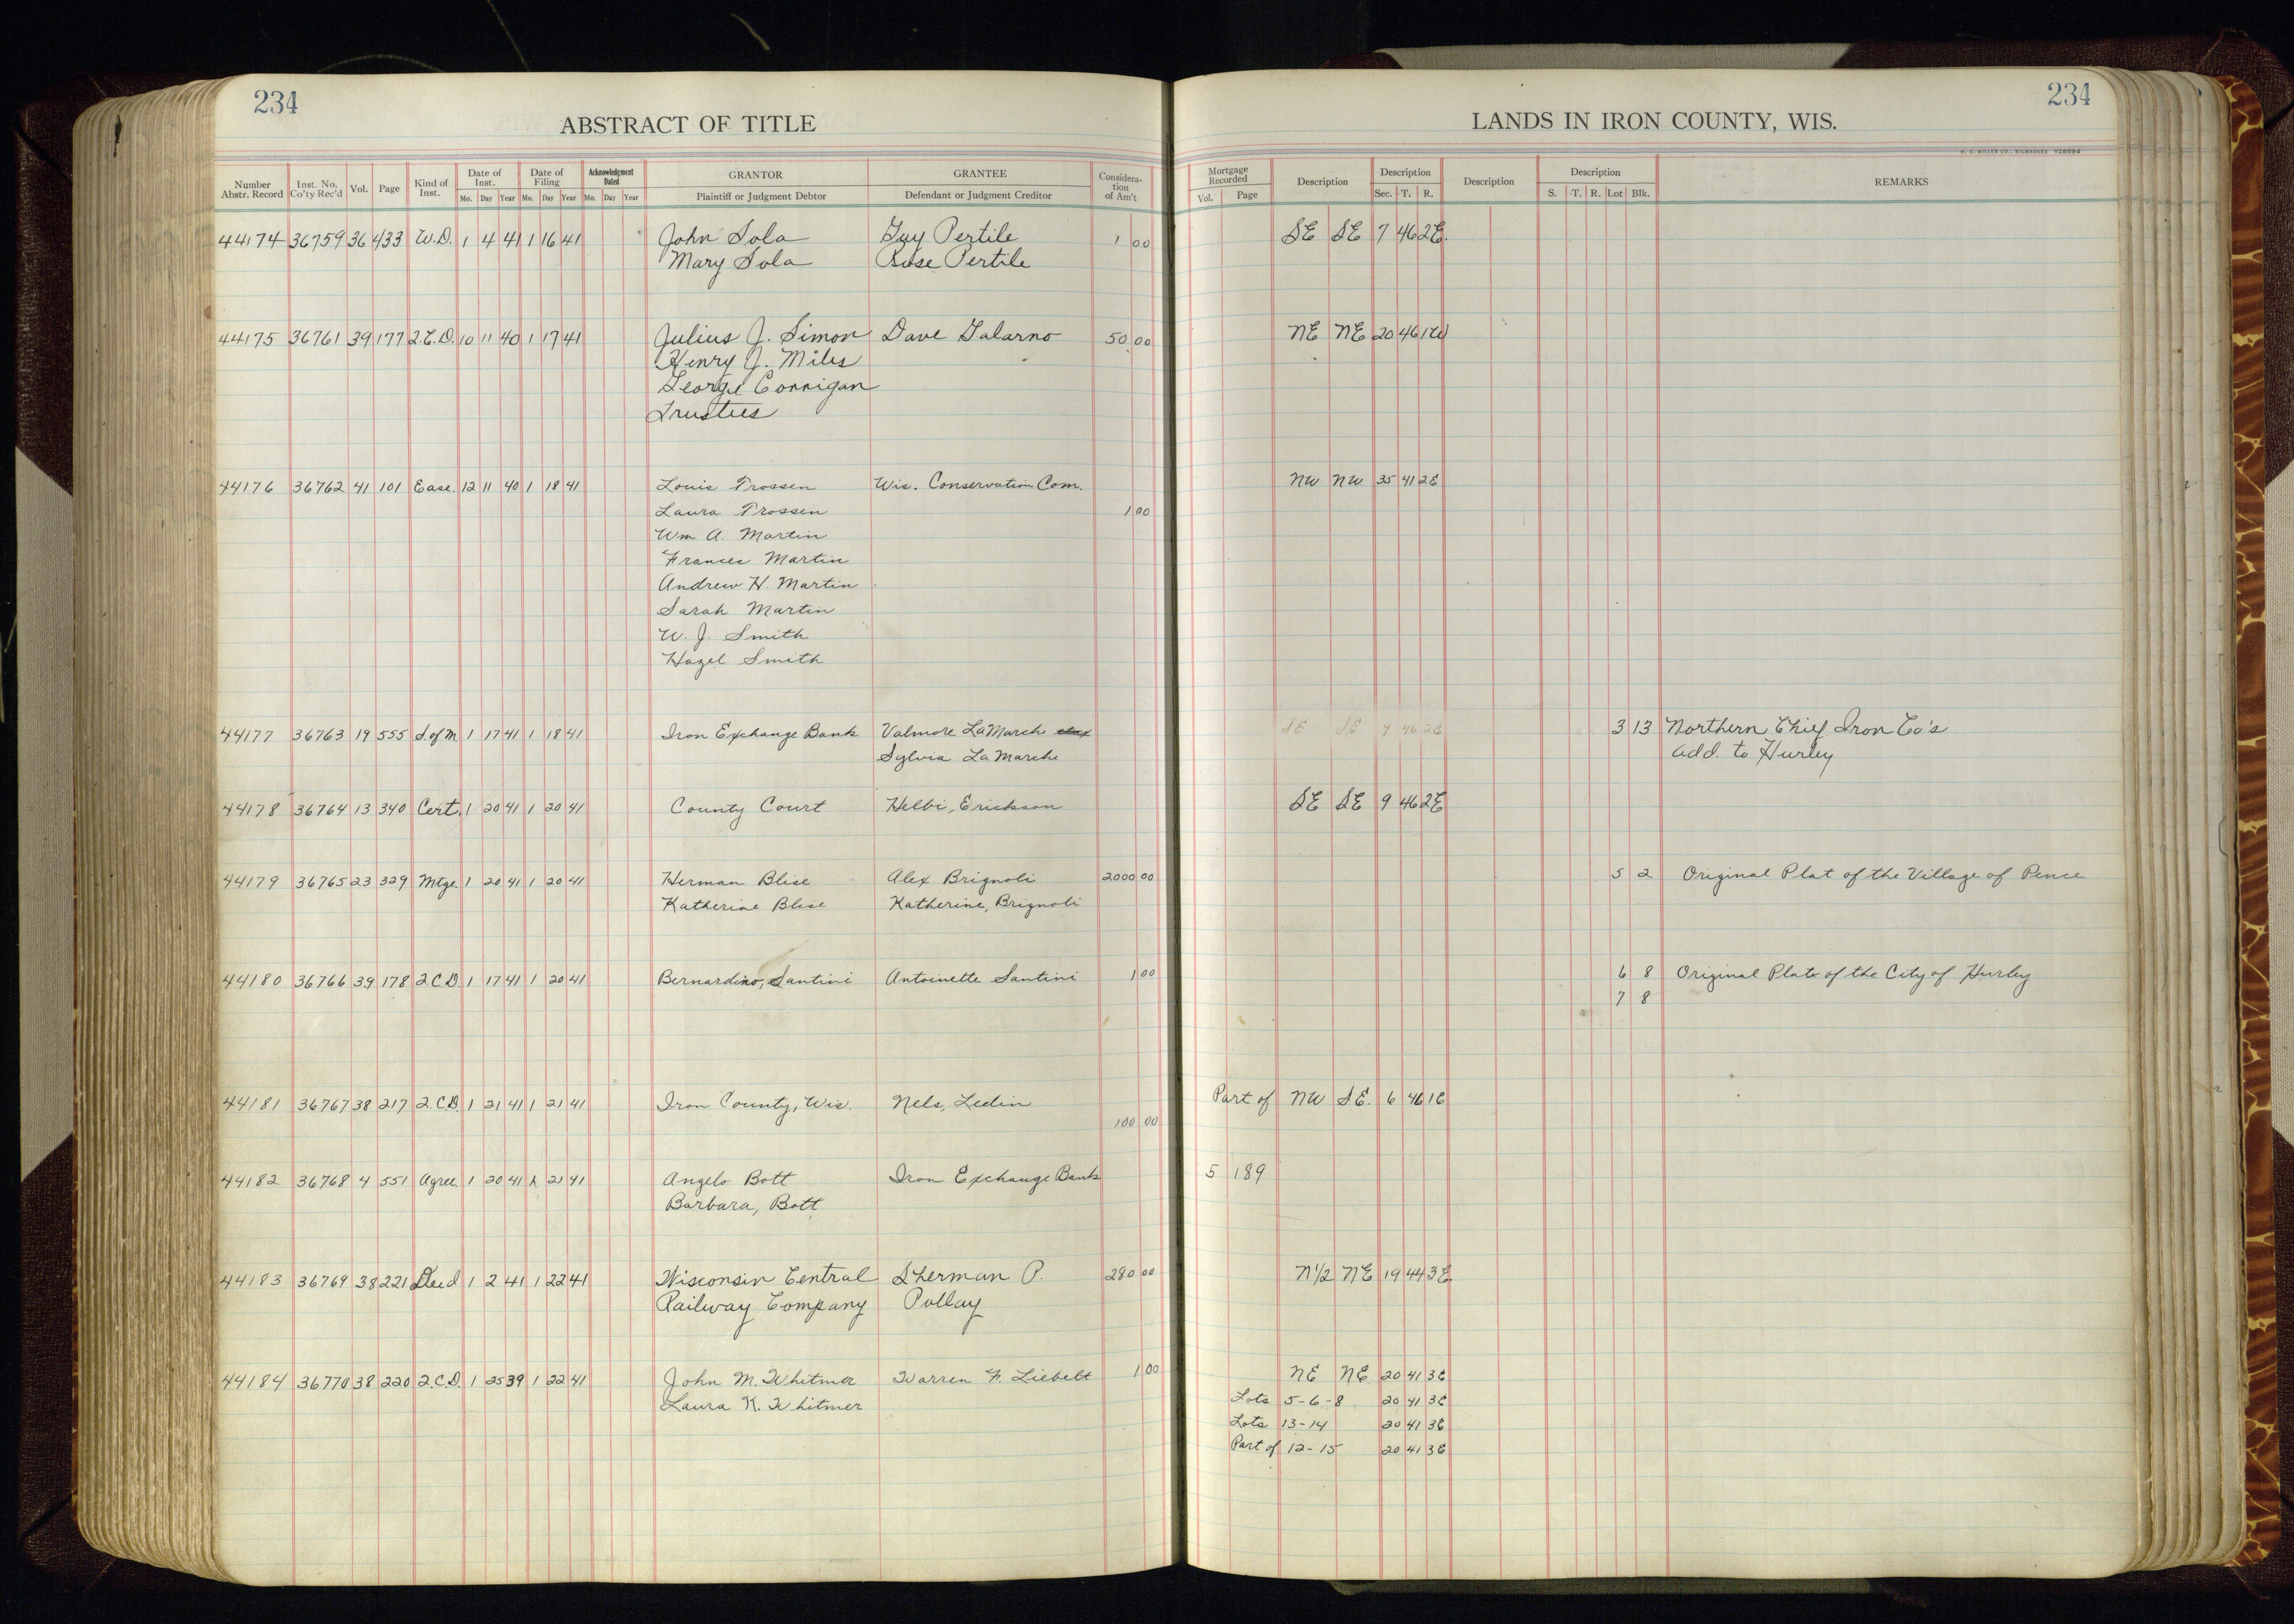 234
ABSTRACT OF TITLE
Number Abstr. Record | Inst. No. Co'ty Rec'd | Vol. | Page | Kind of Inst. | Date of Inst. Mo. Day Year | Date of Filing Mo. Day Year | Acknowledgment Dated Mo. Day Year | GRANTOR Plaintiff or Judgment Debtor | GRANTEE Defendant or Judgment Creditor | Consideration of Am't
234
LANDS IN IRON COUNTY, WIS.
H. C. MILLER CO., MILWAUKEE
Mortgage Recorded Vol. Page | Description | Description Sec. T. R. | Description | Description S. T. R. Lot Blk. | REMARKS
44174 36759 36 433 W.D. 1 4 41 1 16 41 John Sola Guy Pertile 1 00 SE SE 7 46 2E.
Mary Sola Rose Pertile
44175 36761 39 177 2.C.D. 10 11 40 1 17 41 Julius J. Simon Dave Galarno 50 00 NE NE 20 46 1W
Henry J. Miles
George Corrigan
Trustees
44176 36762 41 101 Ease. 12 11 40 1 18 41 Louis Trossen Wis. Conservation Com. NW NW 35 41 2E
Laura Trossen 1 00
Wm A. Martin
Frances Martin
Andrew H. Martin
Sarah Martin
W. J. Smith
Hazel Smith
44177 36763 19 555 S.of M. 1 17 41 1 18 41 Iron Exchange Bank Valmore LaMarche SE SE 9 46 2E 3 13 Northern Chief Iron Co's
Sylvia LaMarche Add. to Hurley
44178 36764 13 340 Cert. 1 20 41 1 20 41 County Court Helbi, Erickson SE SE 9 46 2E
44179 36765 23 329 Mtge. 1 20 41 1 20 41 Herman Blise Alex Brignoli 2000 00 5 2 Original Plat of the Village of Pence
Katherine Blise Katherine, Brignoli
44180 36766 39 178 2.C.D. 1 17 41 1 20 41 Bernardino, Santini Antoinette Santini 1 00 6 8 Original Plat of the City of Hurley
7 8
44181 36767 38 217 2.C.D. 1 21 41 1 21 41 Iron County, Wis. Nels, Ledin Part of NW SE. 6 46 1E
100 00
44182 36768 4 551 Agree. 1 20 41 1 21 41 Angelo Bott Iron Exchange Bank 5 189
Barbara, Bott
44183 36769 38 221 Deed 1 2 41 1 22 41 Wisconsin Central Sherman P. 280 00 N1/2 NE 19 44 3E.
Railway Company Pollay
44184 36770 38 220 2.C.D. 1 25 39 1 22 41 John M. Whitmer Warren F. Liebelt 1 00 NE NE 20 41 3E
Laura K. Whitmer Lots 5-6-8 20 41 3E
Lots 13-14 20 41 3E
Part of 12-15 20 41 3E